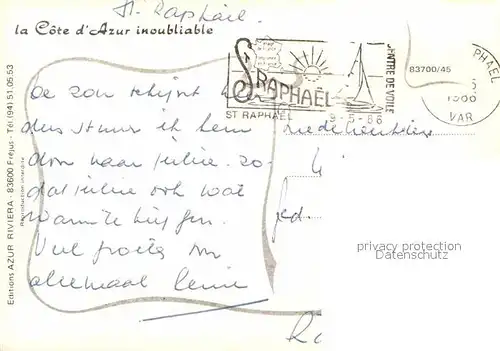 St. Raphaël.
la Côte d'Azur inoubliable
De zon schijnt hier
dus stuur ik hem
door naar jullie. zo-
dat jullie ook wat
warmte krijgen.
Vele groetjes
allemaal
St RAPHAËL
ST RAPHAEL 9-5-86
CENTRE DE VOILE
83700/45
PHAEL
VAR
Editions AZUR RIVIERA - 83600 Fréjus - Tél. (94) 51.05.53
Reproduction interdite
privacy protection
Datenschutz